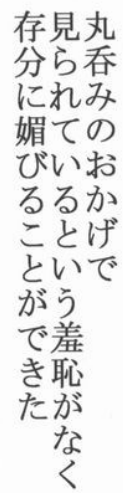 丸呑みのおかげで
見られているという羞恥がなく
存分に媚びることができた